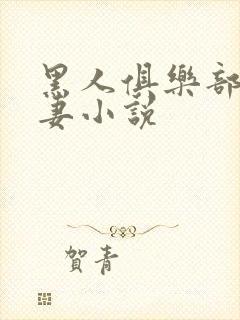 黑人俱樂部
妻小說
賀青